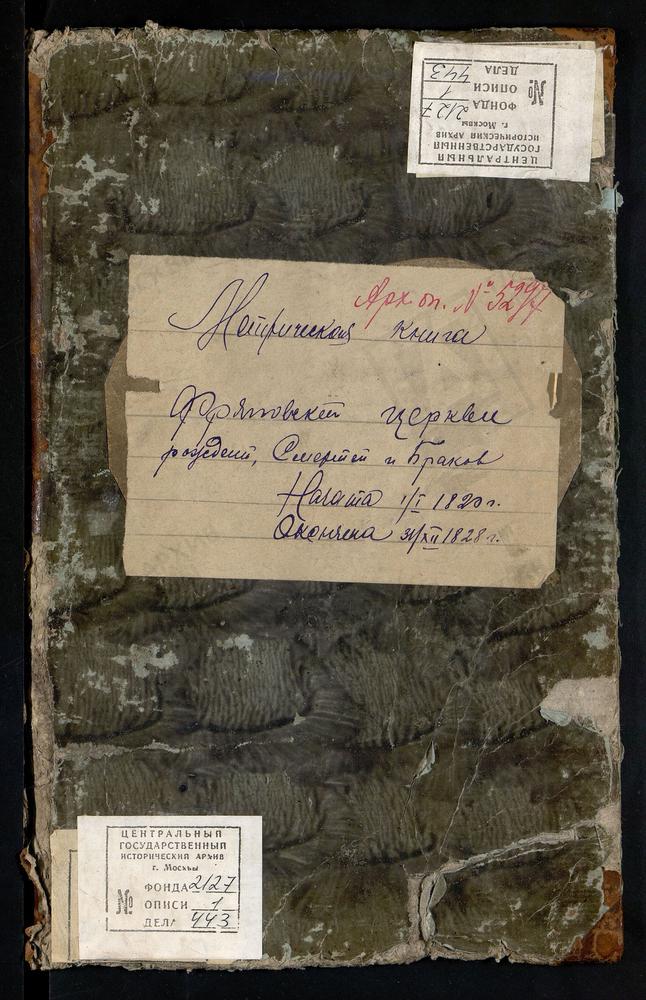 ЦЕНТРАЛЬНЫЙ
ГОСУДАРСТВЕННЫЙ
ИСТОРИЧЕСКИЙ АРХИВ
г. Москвы
№
ФОНДА 2127
ОПИСИ 1
ДЕЛА 443
Арх оп. № 5297
Метрическая книга
Фряновской церкви
рождений, Смертей и Браков
Начата 1/I 1820 г.
Окончена 31/XII 1828 г.
ЦЕНТРАЛЬНЫЙ
ГОСУДАРСТВЕННЫЙ
ИСТОРИЧЕСКИЙ АРХИВ
г. Москвы
№
ФОНДА 2127
ОПИСИ 1
ДЕЛА 443